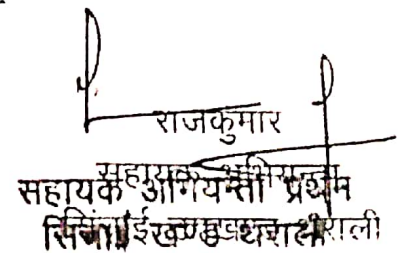 राजकुमार
सहायक अभियन्ता प्रथम
सिंचाई खण्ड थराली